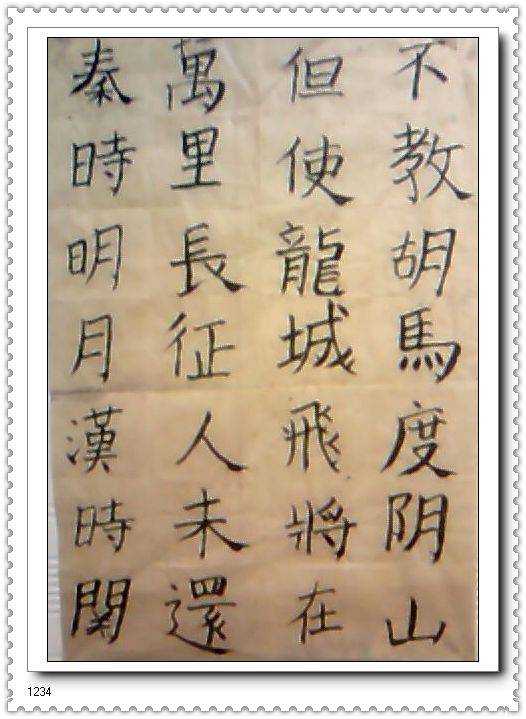 秦時明月漢時関
萬里長征人未還
但使龍城飛將在
不教胡馬度阴山
1234